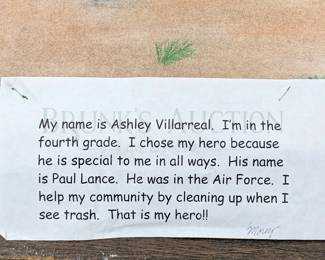 BRUNK'S AUCTION
My name is Ashley Villarreal.  I'm in the
fourth grade.  I chose my hero because
he is special to me in all ways.  His name
is Paul Lance.  He was in the Air Force.  I
help my community by cleaning up when I
see trash.  That is my hero!!